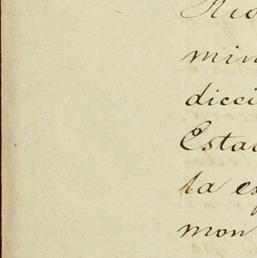 Rio
min
dicci
Esta
la es
mon